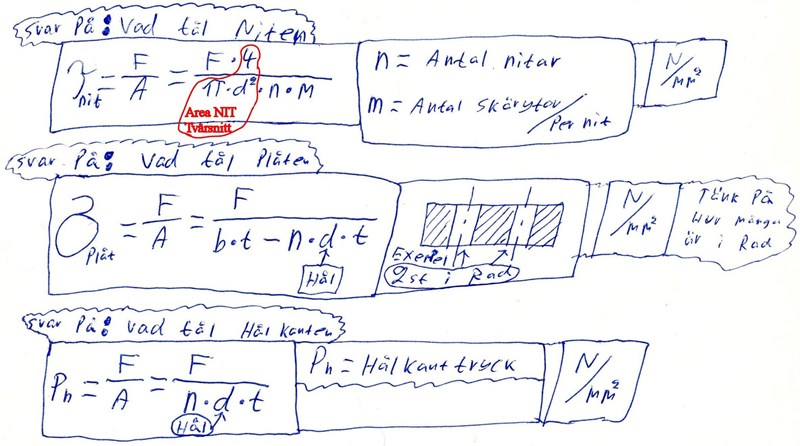 svar På: Vad tål Niten
τnit = F/A = F · 4 / π · d² · n · m
Area NIT
Tvärsnitt
n = Antal nitar
m = Antal skärytor / Per nit
N/mm²
svar På: Vad tål Plåten
σPlåt = F/A = F / b · t – n · d · t
Hål
Exempel
2st i Rad
N/mm²
Tänk På
Hur många
är i Rad
svar På: Vad tål Hål kanten
Ph = F/A = F / n · d · t
Hål
Ph = Hål kant tryck
N/mm²